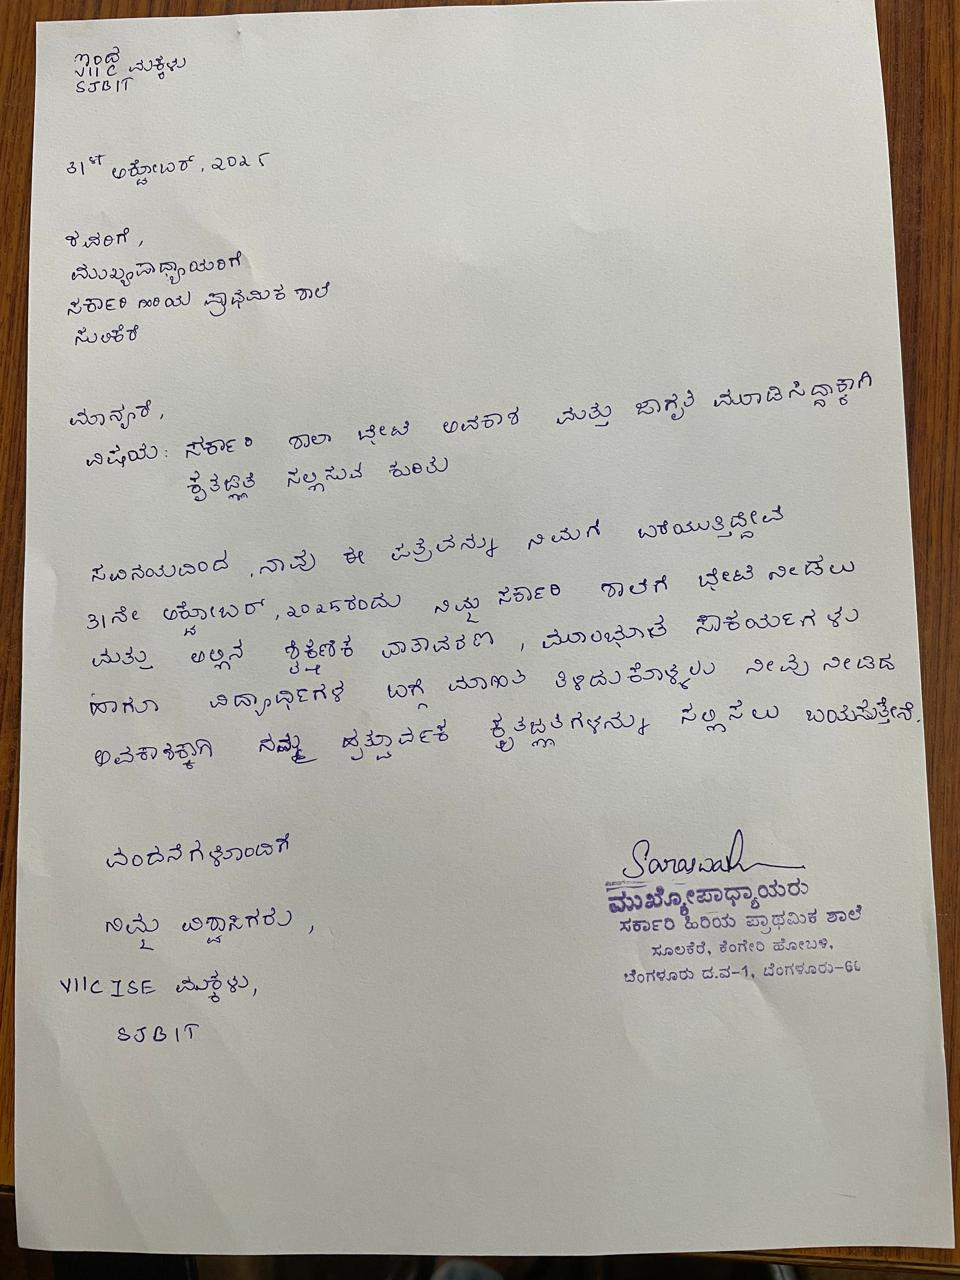 ಇಂದ
VII C ಮಕ್ಕಳು
SJBIT
31st ಅಕ್ಟೋಬರ್, ೨೦೨೬
ಮುಖ್ಯಪಾಧ್ಯಾಯರಿಗೆ
ಸರ್ಕಾರಿ ಹಿರಿಯ ಪ್ರಾಥಮಿಕ ಶಾಲೆ
ಸುಲಿಕೆರೆ
ಮಾನ್ಯರೆ,
ವಿಷಯ: ಸರ್ಕಾರಿ ಶಾಲಾ ಭೇಟಿ ಅವಕಾಶ ಮತ್ತು ಜಾಗೃತಿ ಮೂಡಿಸಿದ್ದಾಕ್ಕಾಗಿ
ಕೃತಜ್ಞತೆ ಸಲ್ಲಿಸುವ ಕುರಿತು
ಸವಿನಯವಿಂದ, ನಾವು ಈ ಪತ್ರವನ್ನು ನಿಮಗೆ ಬರೆಯುತ್ತಿದ್ದೇವೆ
31ನೇ ಅಕ್ಟೋಬರ್, ೨೦೨೫ರಂದು ನಿಮ್ಮ ಸರ್ಕಾರಿ ಶಾಲೆಗೆ ಭೇಟಿ ನೀಡಲು
ಮತ್ತು ಅಲ್ಲಿನ ಶೈಕ್ಷಣಿಕ ವಾತಾವರಣ, ಮೂಲಭೂತ ಸೌಕರ್ಯಗಳು
ಹಾಗೂ ವಿದ್ಯಾರ್ಥಿಗಳ ಬಗ್ಗೆ ಮಾಹಿತಿ ತಿಳಿದುಕೊಳ್ಳಲು ನೀವು ನೀಡಿದ
ಅವಕಾಶಕ್ಕಾಗಿ ನಮ್ಮ ಹೃತ್ಪೂರ್ವಕ ಕೃತಜ್ಞತೆಗಳನ್ನು ಸಲ್ಲಿಸಲು ಬಯಸುತ್ತೇನೆ.
ವಂದನೆಗಳೊಂದಿಗೆ
ನಿಮ್ಮ ವಿಶ್ವಾಸಿಗರು,
VIIC ISE ಮಕ್ಕಳು,
SJBIT
ಮುಖ್ಯೋಪಾಧ್ಯಾಯರು
ಸರ್ಕಾರಿ ಹಿರಿಯ ಪ್ರಾಥಮಿಕ ಶಾಲೆ
ಸೂಲಕೆರೆ, ಕೆಂಗೇರಿ ಹೋಬಳಿ,
ಬೆಂಗಳೂರು ದ.ವ-1, ಬೆಂಗಳೂರು-60